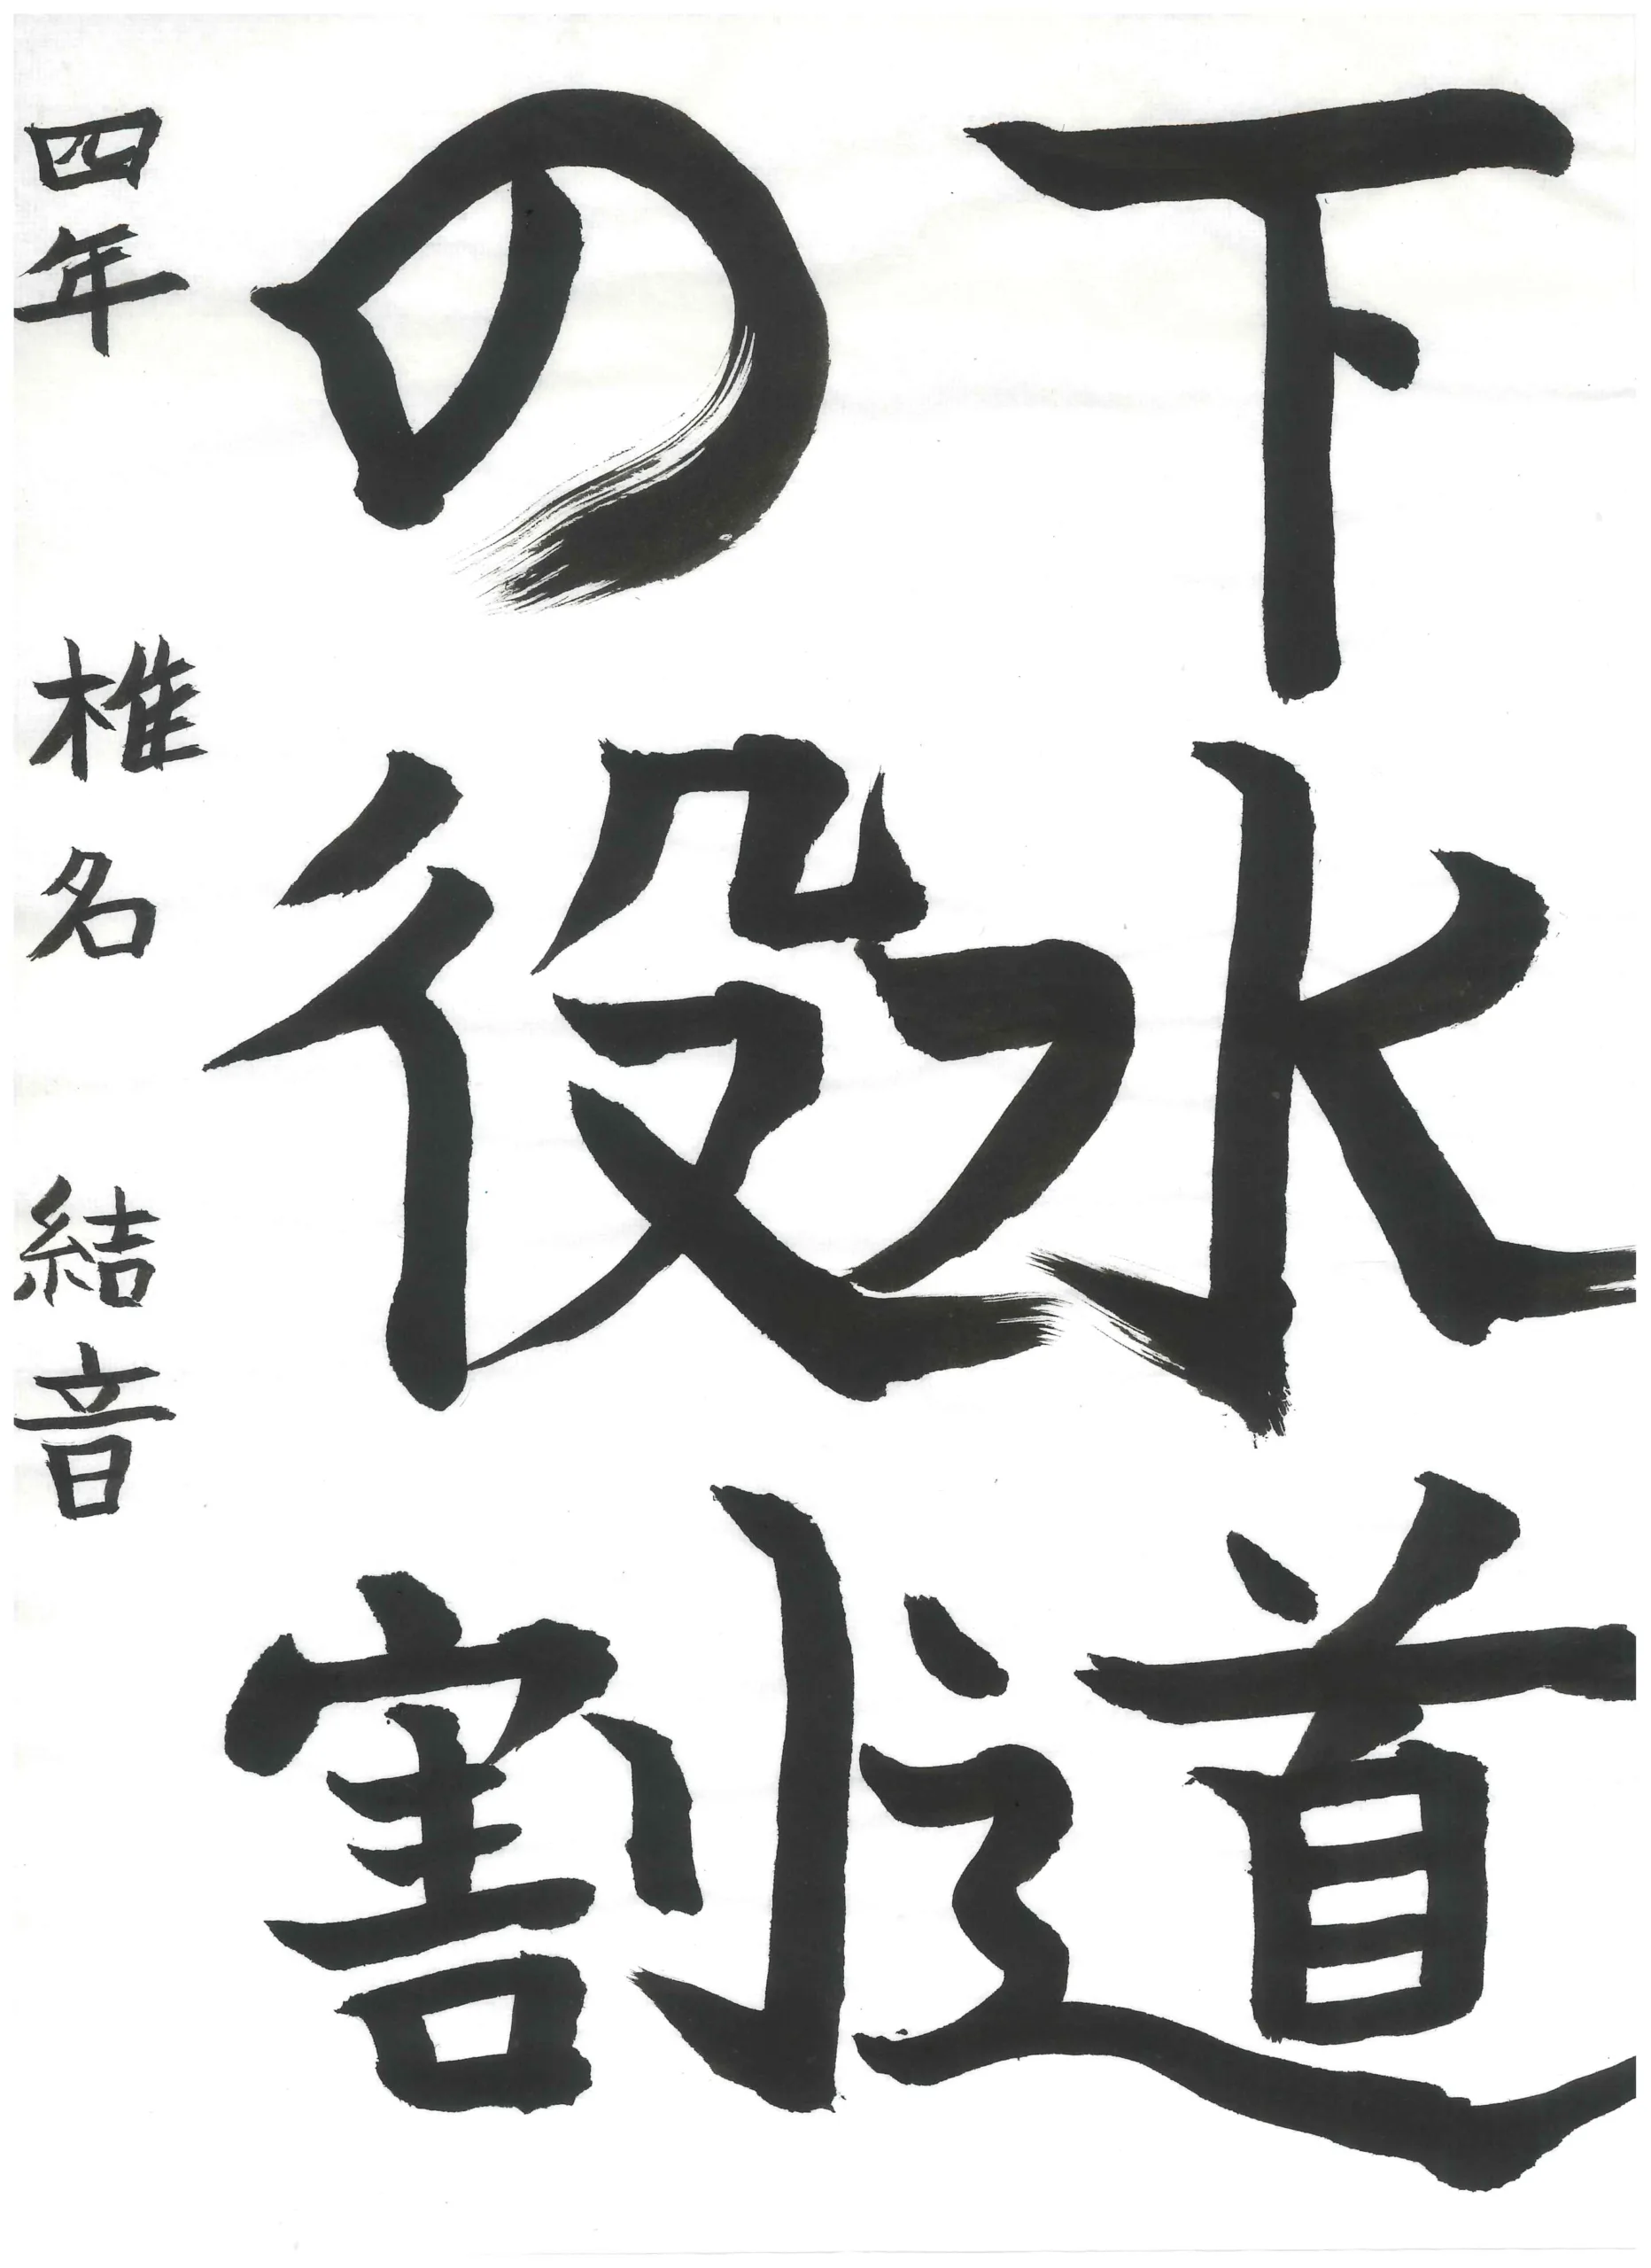 下水道
の役割
四年 椎名 結音